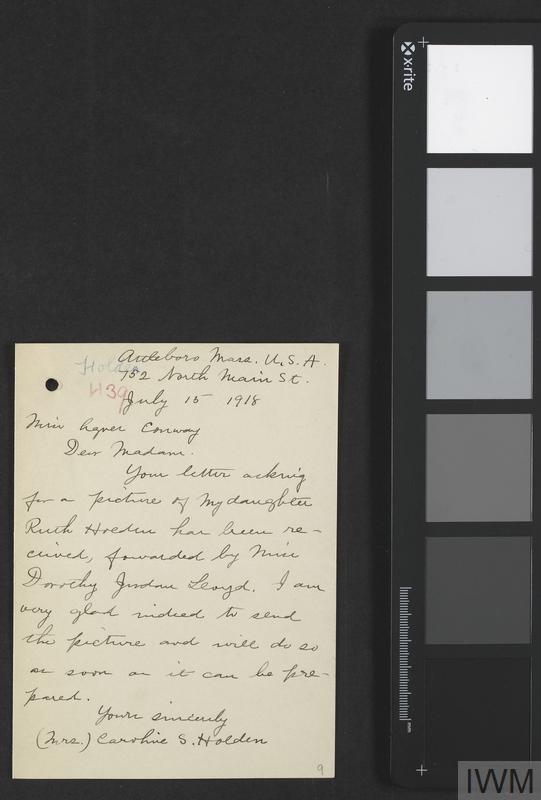 Attleboro Mass. U.S.A.
Holden
752 North Main St.
H39
July 15 1918
Miss Agnes Conway
Dear Madam.
Your letter asking
for a picture of my daughter
Ruth Holden has been re-
ceived, forwarded by Miss
Dorothy Jordan Lloyd. I am
very glad indeed to send
the picture and will do so
as soon as it can be pre-
pared.
Yours sincerely
(Mrs.) Caroline S. Holden
9
x-rite
mm
IWM